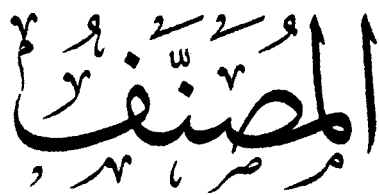 المصنف